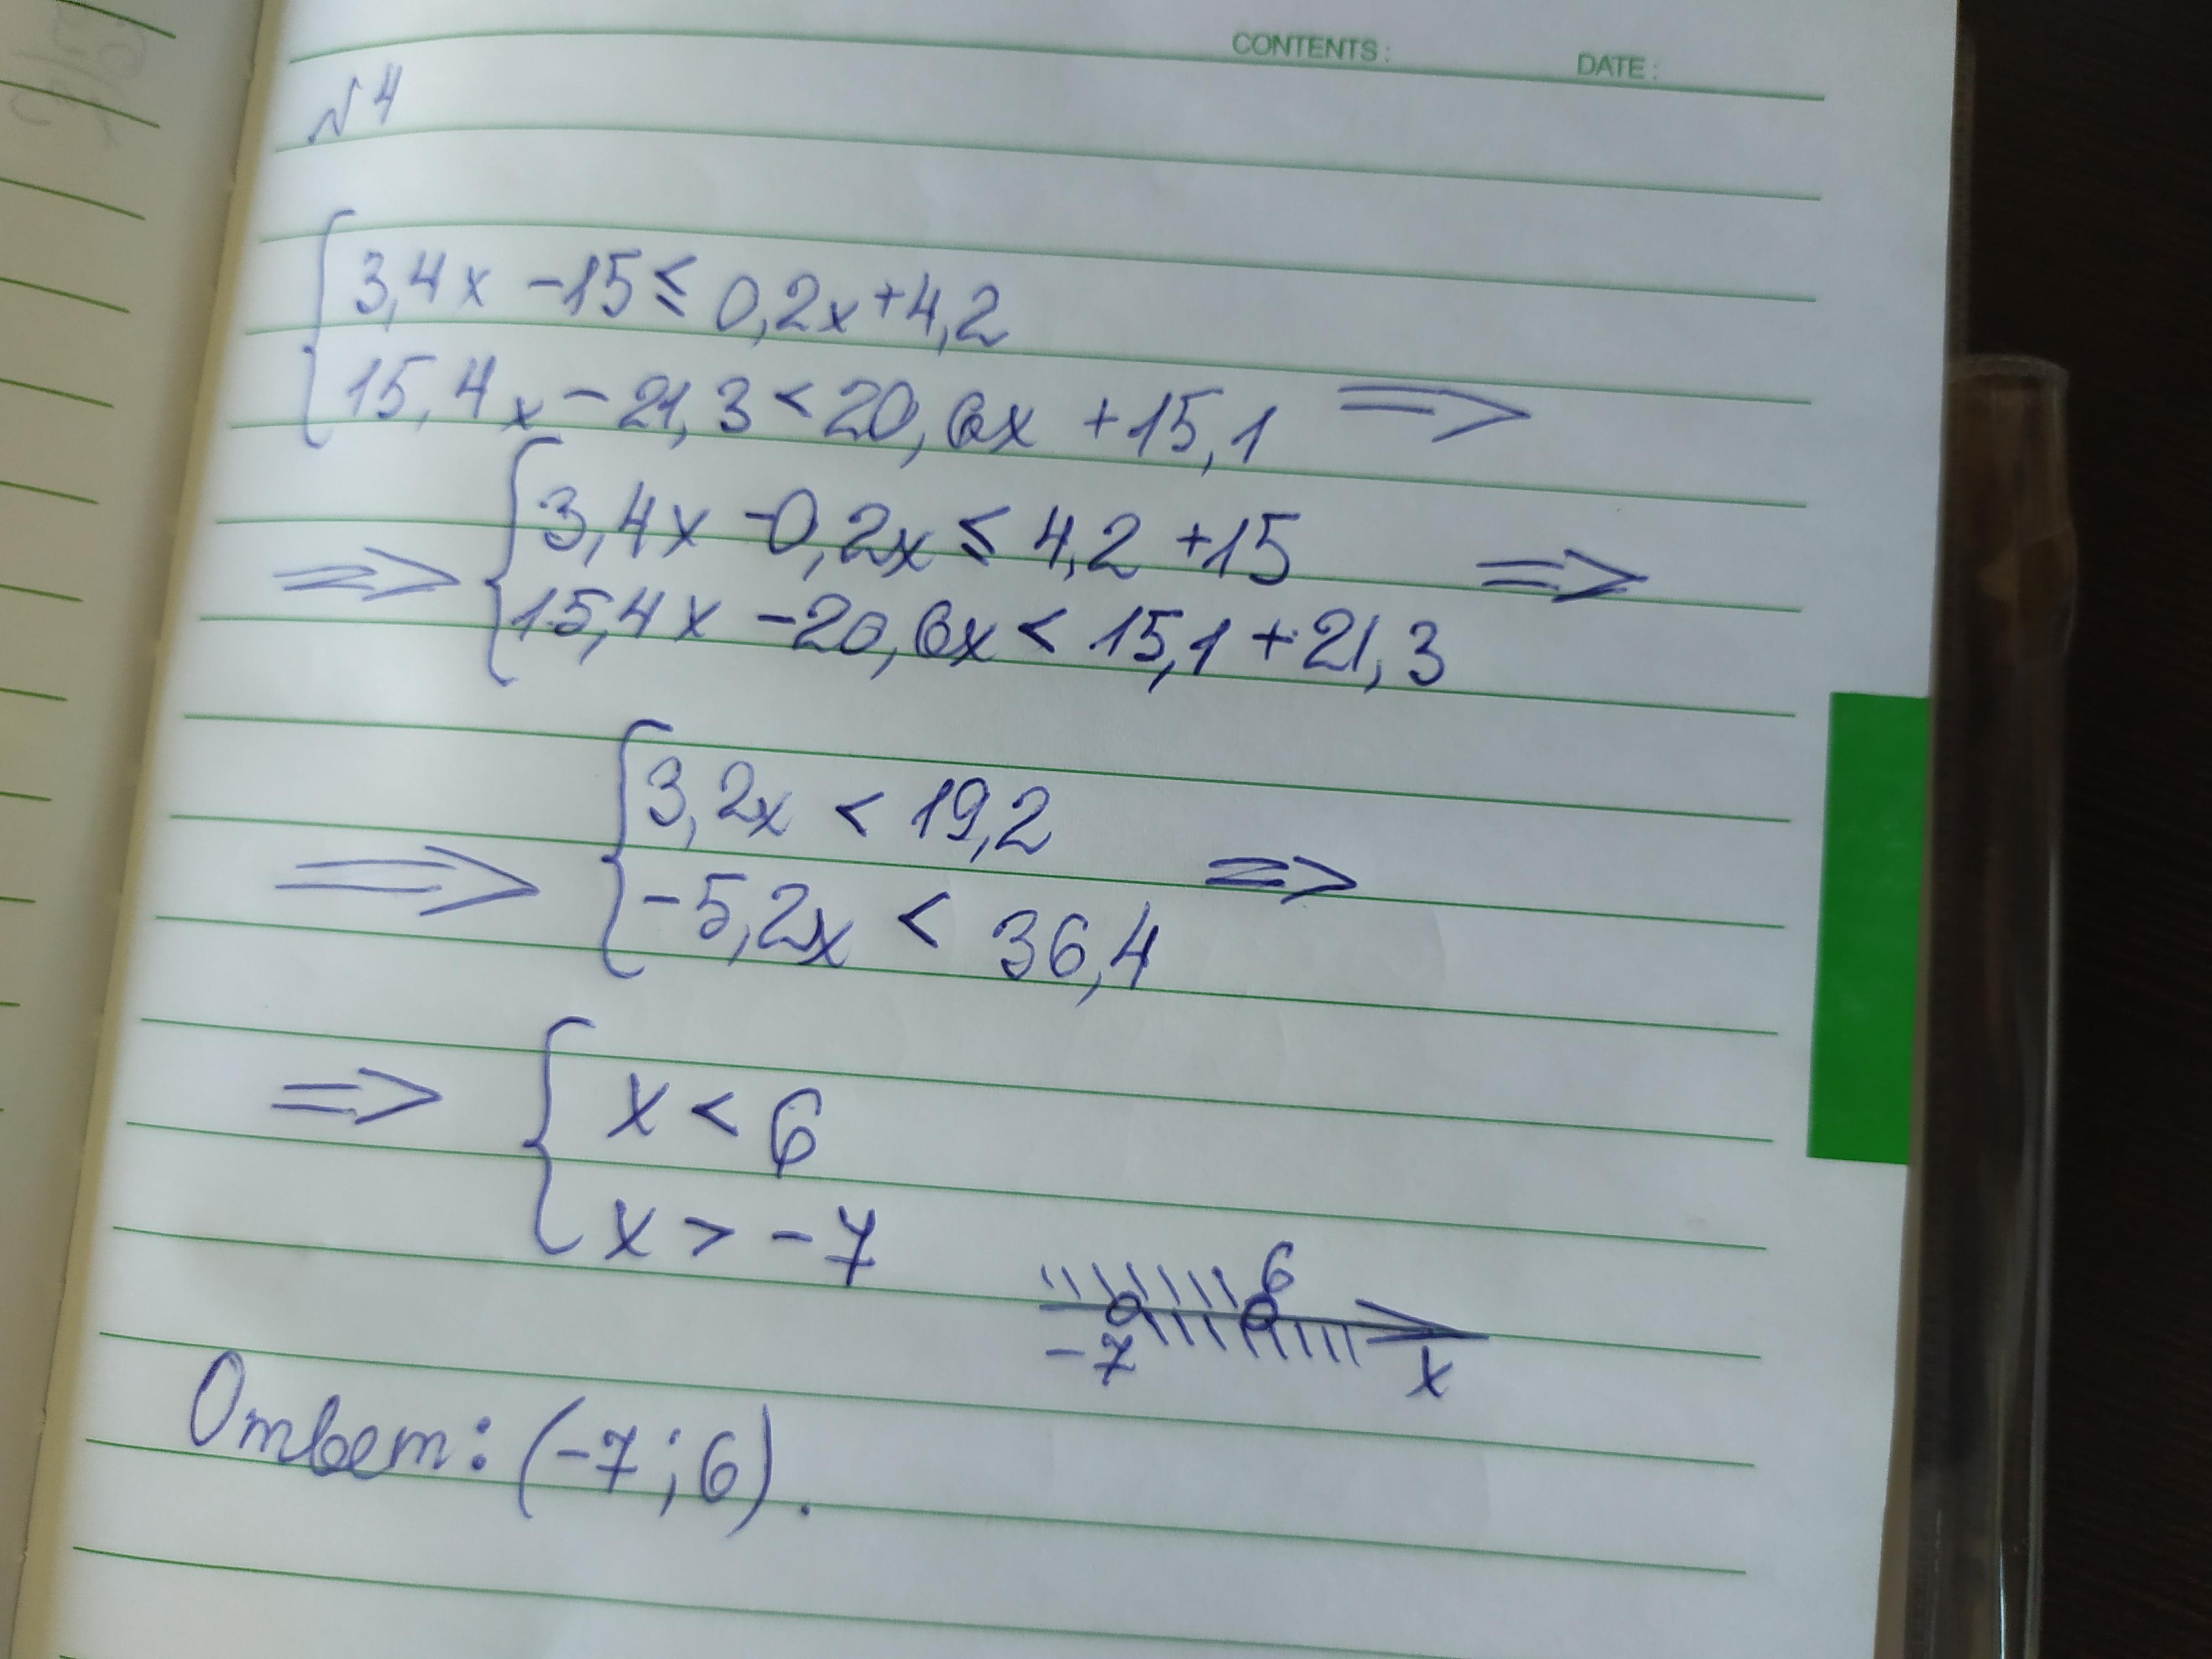 CONTENTS: DATE:
№4
{3,4x -15 ≤ 0,2x+4,2
15,4x - 21,3 < 20,6x +15,1 ⟹
⟹ {3,4x -0,2x ≤ 4,2 +15 ⟹
15,4x -20,6x < 15,1 + 21,3
{3,2x < 19,2
⟹ -5,2x < 36,4 ⟹
⟹ {x < 6
x > -7
6
-7 x
Ответ: (-7; 6).